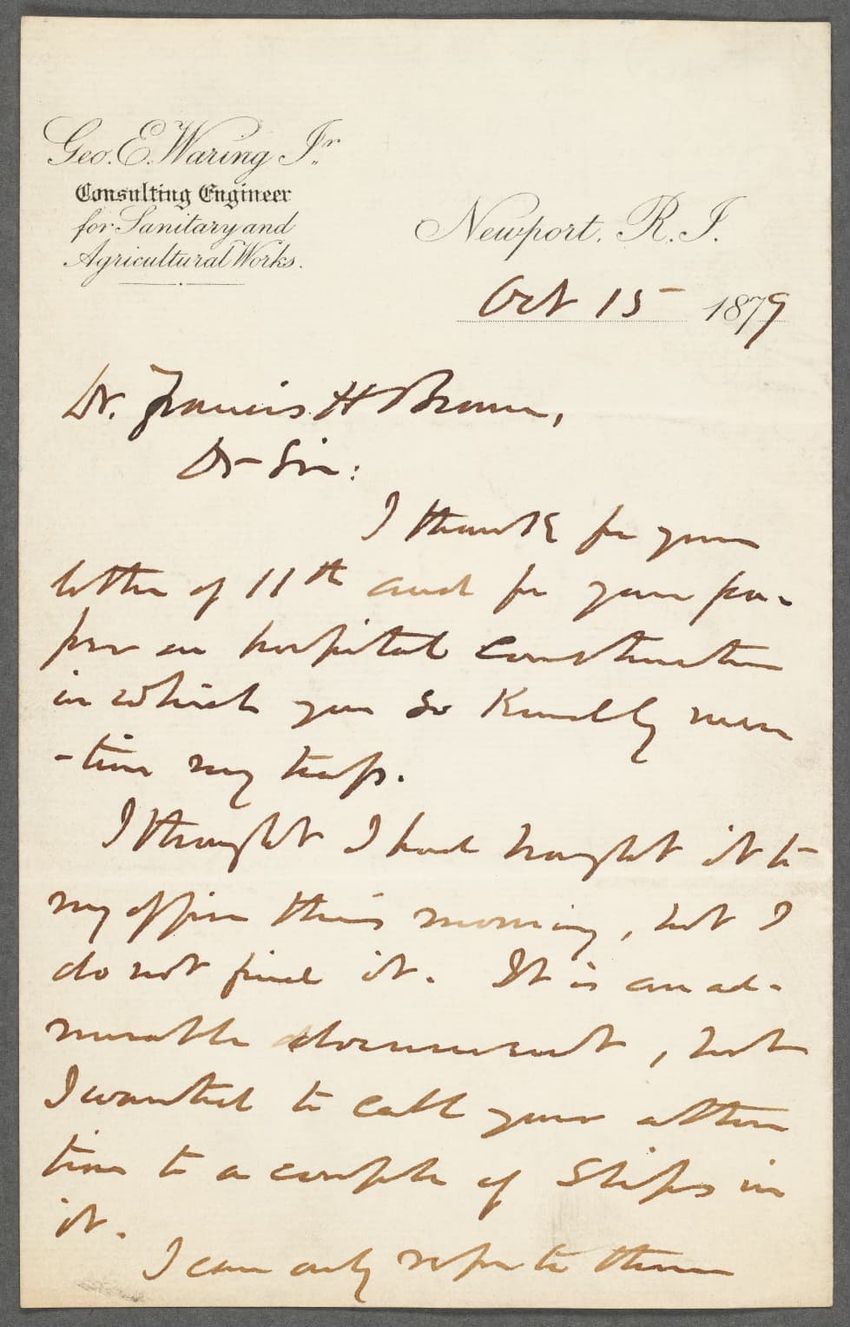 Geo. E. Waring Jr.
Consulting Engineer
for Sanitary and
Agricultural Works.
Newport, R. I.
Oct 15 1879
Dr. Francis H Brown,
Dr Sir:
I thank for your
letter of 11th and for your pa-
per on hospital construction
in which you so kindly men
-tion my trap.
I thought I had brought it to
my office this morning, but I
do not find it. It is an ad-
mirable document, but
I wanted to call your atten
tion to a couple of slips in
it.
I can only refer to them